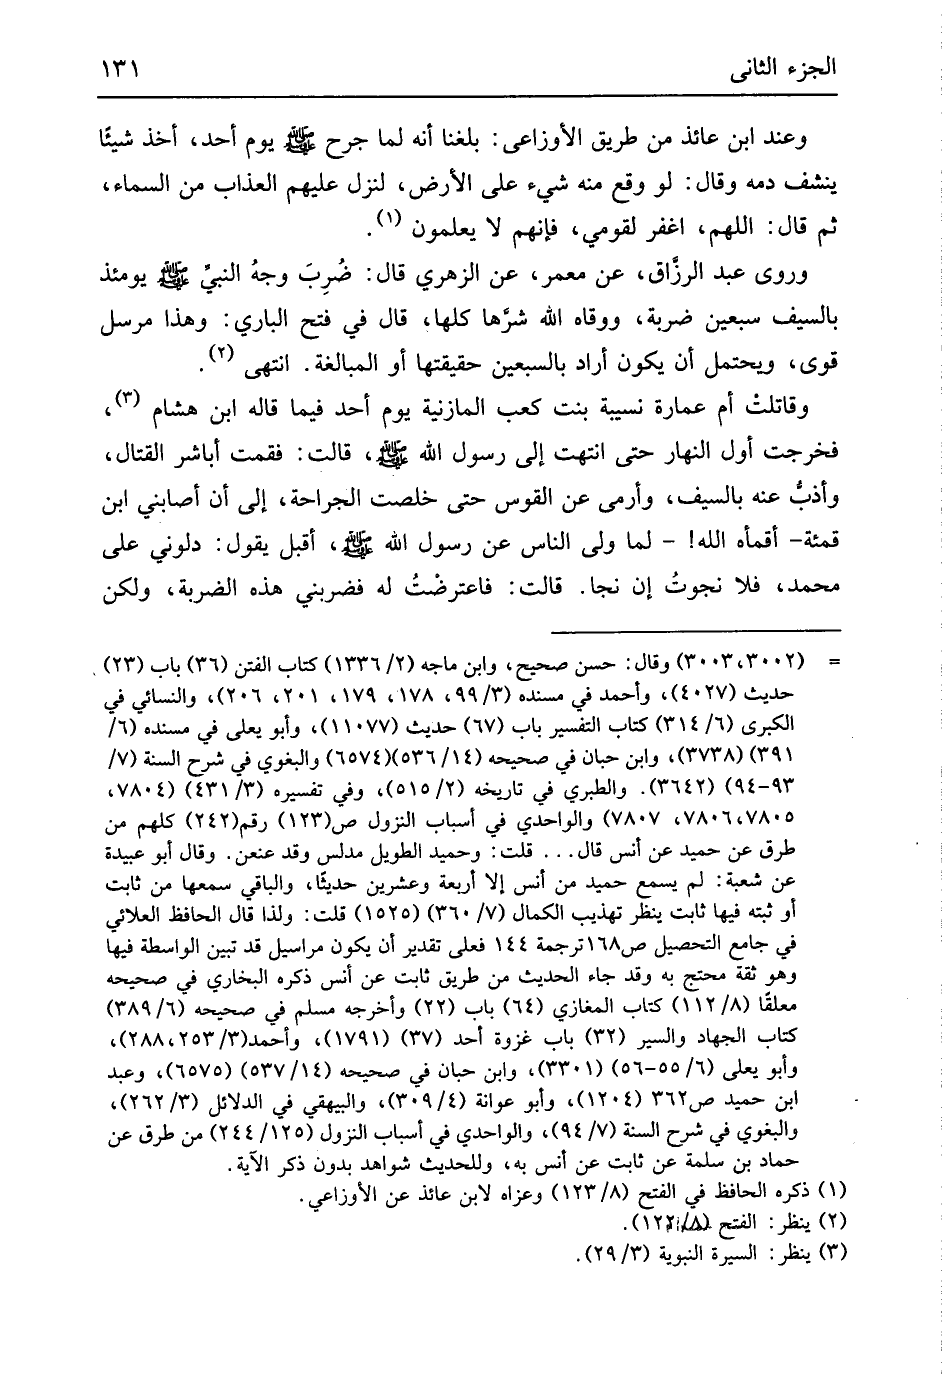 الجزء الثانى ١٣١
وعند ابن عائذ من طريق الأوزاعى: بلغنا أنه لما جرح ﷺ يوم أحد، أخذ شيئًا
ينشف دمه وقال: لو وقع منه شيء على الأرض، لنزل عليهم العذاب من السماء،
ثم قال: اللهم، اغفر لقومي، فإنهم لا يعلمون (١).
وروى عبد الرزَّاق، عن معمر، عن الزهري قال: ضُرِبَ وجهُ النبيِّ ﷺ يومئذ
بالسيف سبعين ضربة، ووقاه الله شرَّها كلها، قال في فتح الباري: وهذا مرسل
قوى، ويحتمل أن يكون أراد بالسبعين حقيقتها أو المبالغة. انتهى (٢).
وقاتلتْ أم عمارة نسيبة بنت كعب المازنية يوم أحد فيما قاله ابن هشام (٣)،
فخرجت أول النهار حتى انتهت إلى رسول الله ﷺ، قالت: فقمت أباشر القتال،
وأذبُّ عنه بالسيف، وأرمى عن القوس حتى خلصت الجراحة، إلى أن أصابني ابن
قمئة- أقمأه الله! - لما ولى الناس عن رسول الله ﷺ، أقبل يقول: دلوني على
محمد، فلا نجوتُ إن نجا. قالت: فاعترضْتُ له فضربني هذه الضربة، ولكن
= (٣٠٠٣،٣٠٠٢) وقال: حسن صحيح، وابن ماجه (١٣٣٦/٢) كتاب الفتن (٣٦) باب (٢٣)
حديث (٤٠٢٧)، وأحمد في مسنده (٩٩/٣، ١٧٨، ١٧٩، ٢٠١، ٢٠٦)، والنسائي في
الكبرى (٣١٤/٦) كتاب التفسير باب (٦٧) حديث (١١٠٧٧)، وأبو يعلى في مسنده (٦/
٣٩١) (٣٧٣٨)، وابن حبان في صحيحه (٥٣٦/١٤)(٦٥٧٤) والبغوي في شرح السنة (٧/
٩٣-٩٤) (٣٦٤٢). والطبري في تاريخه (٥١٥/٢)، وفي تفسيره (٤٣١/٣) (٧٨٠٤،
٧٨٠٦،٧٨٠٥، ٧٨٠٧) والواحدي في أسباب النزول ص(١٢٣) رقم(٢٤٢) كلهم من
طرق عن حميد عن أنس قال... قلت: وحميد الطويل مدلس وقد عنعن. وقال أبو عبيدة
عن شعبة: لم يسمع حميد من أنس إلا أربعة وعشرين حديثًا، والباقي سمعها من ثابت
أو ثبته فيها ثابت ينظر تهذيب الكمال (٣٦٠/٧) (١٥٢٥) قلت: ولذا قال الحافظ العلائي
في جامع التحصيل ص١٦٨ترجمة ١٤٤ فعلى تقدير أن يكون مراسيل قد تبين الواسطة فيها
وهو ثقة محتج به وقد جاء الحديث من طريق ثابت عن أنس ذكره البخاري في صحيحه
معلقًا (١١٢/٨) كتاب المغازي (٦٤) باب (٢٢) وأخرجه مسلم في صحيحه (٣٨٩/٦)
كتاب الجهاد والسير (٣٢) باب غزوة أحد (٣٧) (١٧٩١)، وأحمد(٢٨٨،٢٥٣/٣)،
وأبو يعلى (٥٥/٦-٥٦) (٣٣٠١)، وابن حبان في صحيحه (٥٣٧/١٤) (٦٥٧٥)، وعبد
ابن حميد ص٣٦٢ (١٢٠٤)، وأبو عوانة (٣٠٩/٤)، والبيهقي في الدلائل (٢٦٢/٣)،
والبغوي في شرح السنة (٩٤/٧)، والواحدي في أسباب النزول (٢٤٤/١٢٥) من طرق عن
حماد بن سلمة عن ثابت عن أنس به، وللحديث شواهد بدون ذكر الآية.
(١) ذكره الحافظ في الفتح (١٢٣/٨) وعزاه لابن عائذ عن الأوزاعي.
(٢) ينظر: الفتح
(٣) ينظر: السيرة النبوية (٢٩/٣).